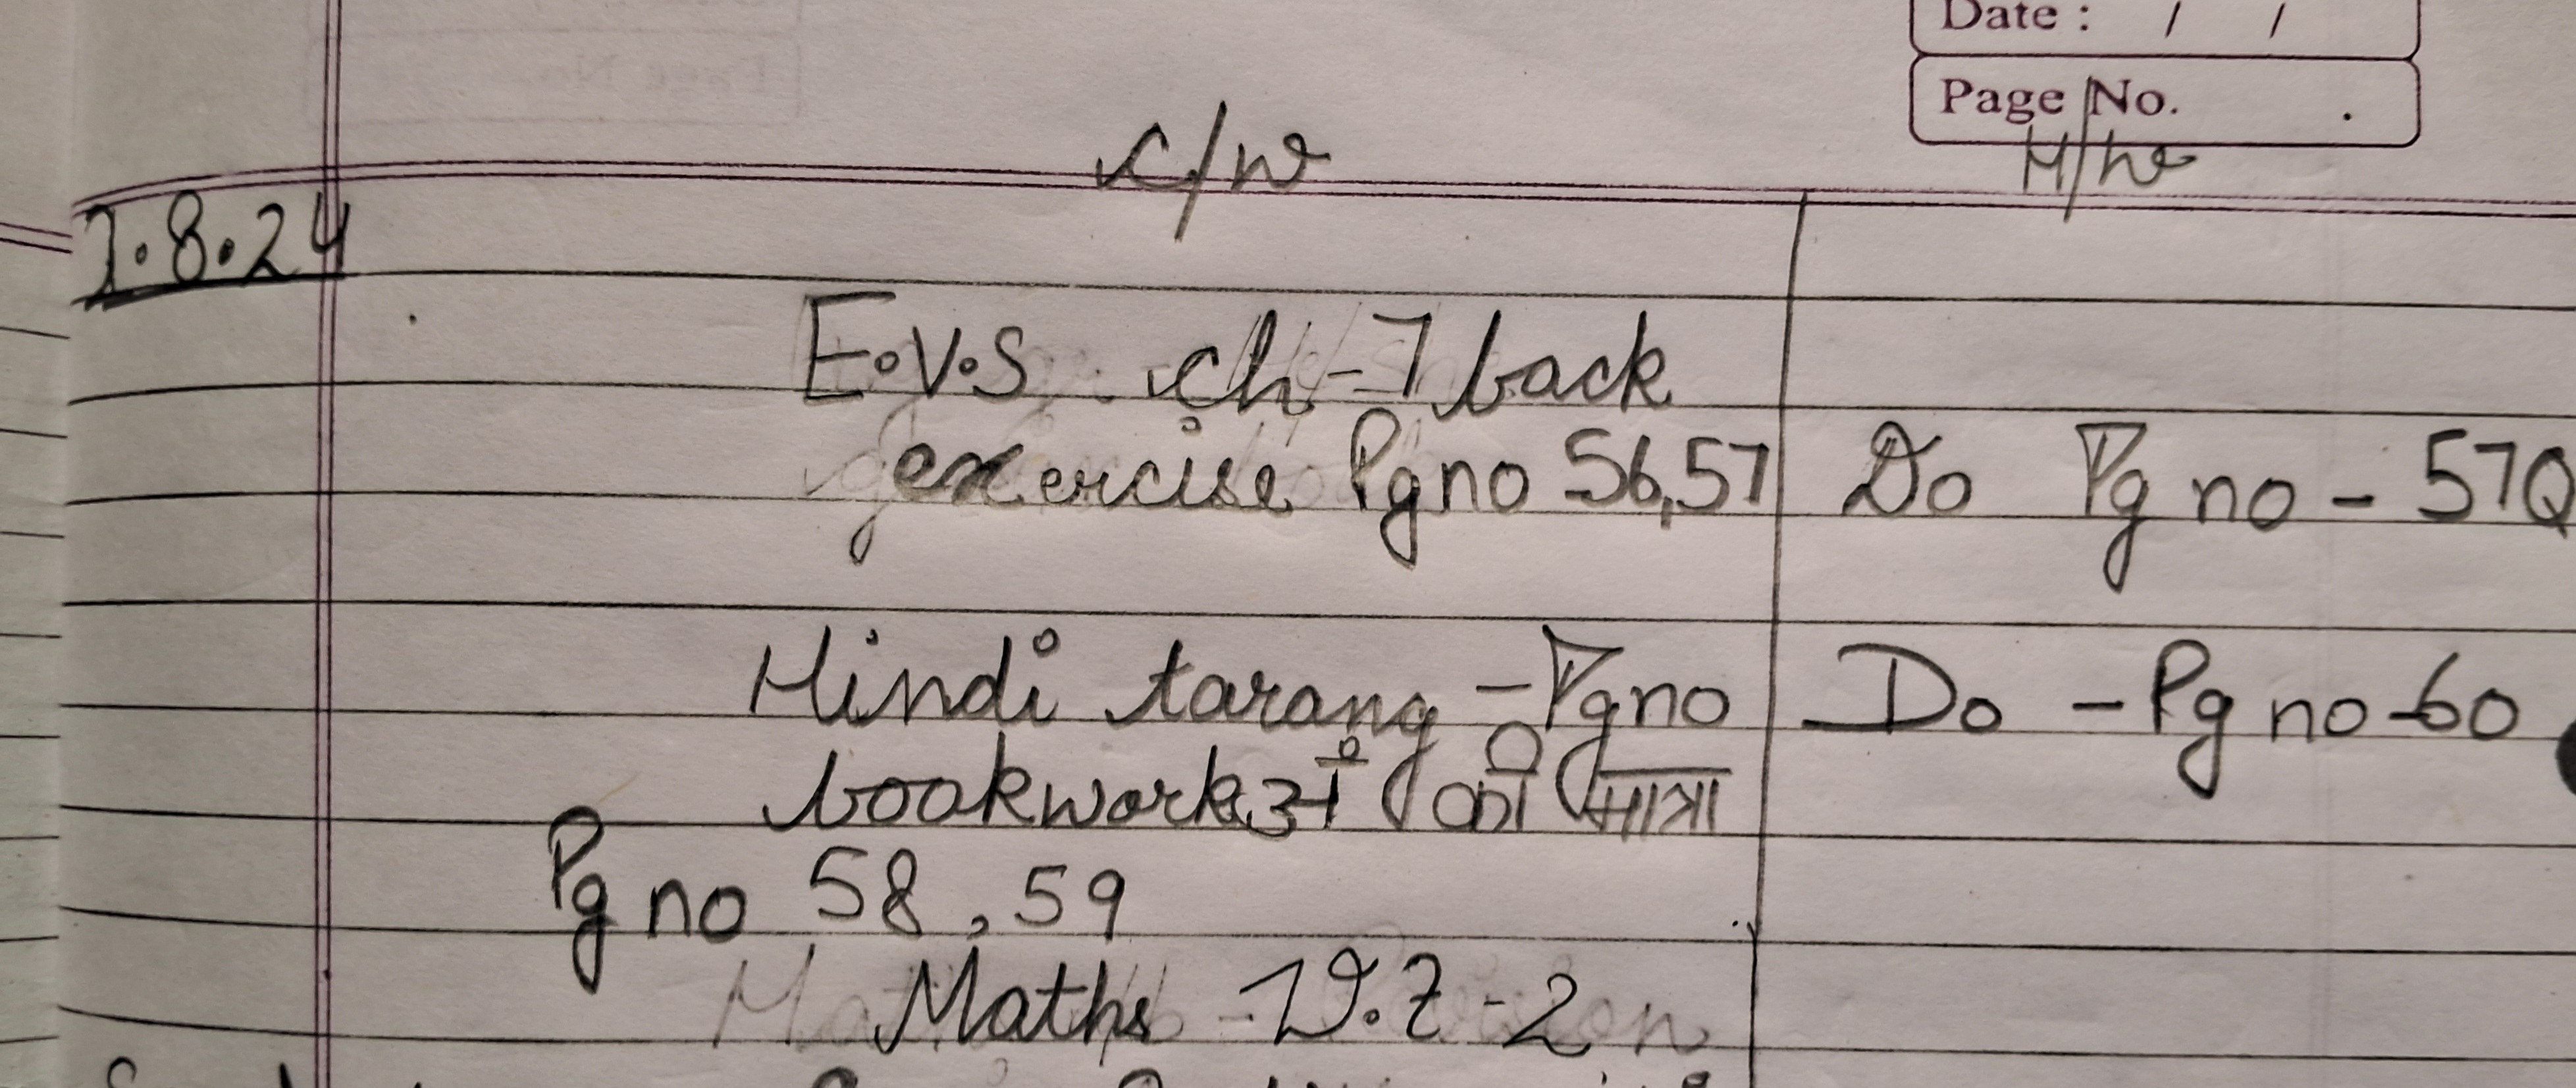 Date : / /
Page No.
C/W
H/W
1.8.24
E.V.S. ch-7 back
exercise Pg no 56,57
Do Pg no - 57Q
Hindi tarang - Pg no
Do - Pg no - 60
bookwork अं की मात्रा
Pg no 58, 59
Maths -